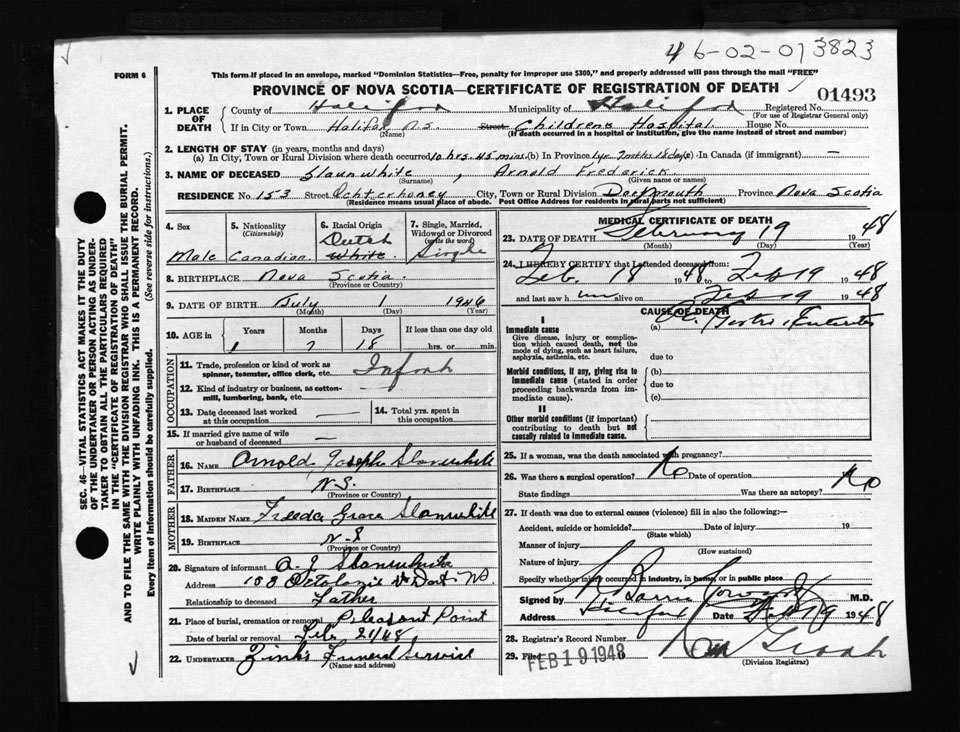 46-02-013823
FORM 6
This form if placed in an envelope, marked "Dominion Statistics—Free, penalty for improper use $300," and properly addressed will pass through the mail "FREE"
PROVINCE OF NOVA SCOTIA—CERTIFICATE OF REGISTRATION OF DEATH
01493
1. PLACE OF DEATH
County of Halifax Municipality of Halifax Registered No.
(For use of Registrar General only)
If in City or Town Halifax N.S. Street Childrens Hospital House No.
(Name) (If death occurred in a hospital or institution, give the name instead of street and number)
2. LENGTH OF STAY (in years, months and days)
(a) In City, Town or Rural Division where death occurred 10 hrs. 45 mins. (b) In Province 1 yr. 7 mths 18 days (c) In Canada (if immigrant) —
3. NAME OF DECEASED Slaunwhite, Arnold Frederick
(Surname) (Given name or names)
RESIDENCE No. 153 Street City, Town or Rural Division Dartmouth Province Nova Scotia
(Residence means usual place of abode. Post Office Address for residents in rural parts not sufficient)
4. Sex
Male
5. Nationality
(Citizenship)
Canadian
6. Racial Origin
Dutch
White
7. Single, Married, Widowed or Divorced
(write the word)
Single
8. BIRTHPLACE Nova Scotia
(Province or Country)
9. DATE OF BIRTH July 1 1946
(Month) (Day) (Year)
10. AGE in
Years Months Days If less than one day old
1 7 18 hrs. or min.
OCCUPATION
11. Trade, profession or kind of work as spinner, teamster, office clerk, etc. Infant
12. Kind of industry or business, as cotton-mill, lumbering, bank, etc. —
13. Date deceased last worked at this occupation —
14. Total yrs. spent in this occupation
15. If married give name of wife or husband of deceased —
FATHER
16. NAME Arnold Joseph Slaunwhite
17. BIRTHPLACE N.S.
(Province or Country)
MOTHER
18. MAIDEN NAME Freeda Grace Slaunwhite
19. BIRTHPLACE N.S
(Province or Country)
20. Signature of informant A. J. Slaunwhite
Address 153
Relationship to deceased Father
21. Place of burial, cremation or removal Pleasant Point
Date of burial or removal Feb 21/48
22. UNDERTAKER Zink's Funeral Service
(Name and address)
MEDICAL CERTIFICATE OF DEATH
23. DATE OF DEATH February 19 1948
(Month) (Day) (Year)
24. I HEREBY CERTIFY that I attended deceased from:
Feb. 18 1948 to Feb 19 1948
and last saw h im alive on Feb 19 1948
CAUSE OF DEATH
I
Immediate cause
Give disease, injury or complication which caused death, not the mode of dying, such as heart failure, asphyxia, asthenia, etc.
(a) Gastro Enteritis
due to
Morbid conditions, if any, giving rise to immediate cause (stated in order proceeding backwards from immediate cause).
(b)
due to
(c)
II
Other morbid conditions (if important) contributing to death but not causally related to immediate cause.
25. If a woman, was the death associated with pregnancy?
26. Was there a surgical operation? No Date of operation
State findings Was there an autopsy? No
27. If death was due to external causes (violence) fill in also the following:—
Accident, suicide or homicide? Date of injury 19
(State which)
Manner of injury
(How sustained)
Nature of injury
Specify whether injury occurred in industry, in home, or in public place
Signed by M.D.
Address Halifax Date Feb 19 1948
28. Registrar's Record Number
29. Filed FEB 19 1948
(Division Registrar)
SEC. 46—VITAL STATISTICS ACT MAKES IT THE DUTY OF THE UNDERTAKER OR PERSON ACTING AS UNDERTAKER TO OBTAIN ALL THE PARTICULARS REQUIRED IN THE "CERTIFICATE OF REGISTRATION OF DEATH" AND TO FILE THE SAME WITH THE DIVISION REGISTRAR WHO SHALL ISSUE THE BURIAL PERMIT.
WRITE PLAINLY WITH UNFADING INK. THIS IS A PERMANENT RECORD.
Every item of Information should be carefully supplied. (See reverse side for instructions.)